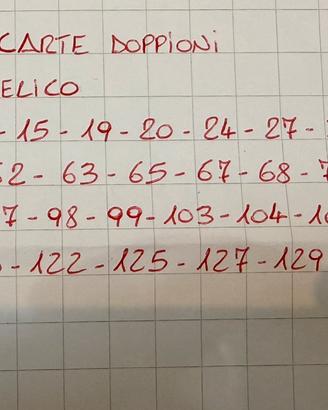 CARTE DOPPIONI
ELICO
- 15 - 19 - 20 - 24 - 27 -
2 - 63 - 65 - 67 - 68 -
7 - 98 - 99 - 103 - 104 -
- 122 - 125 - 127 - 129